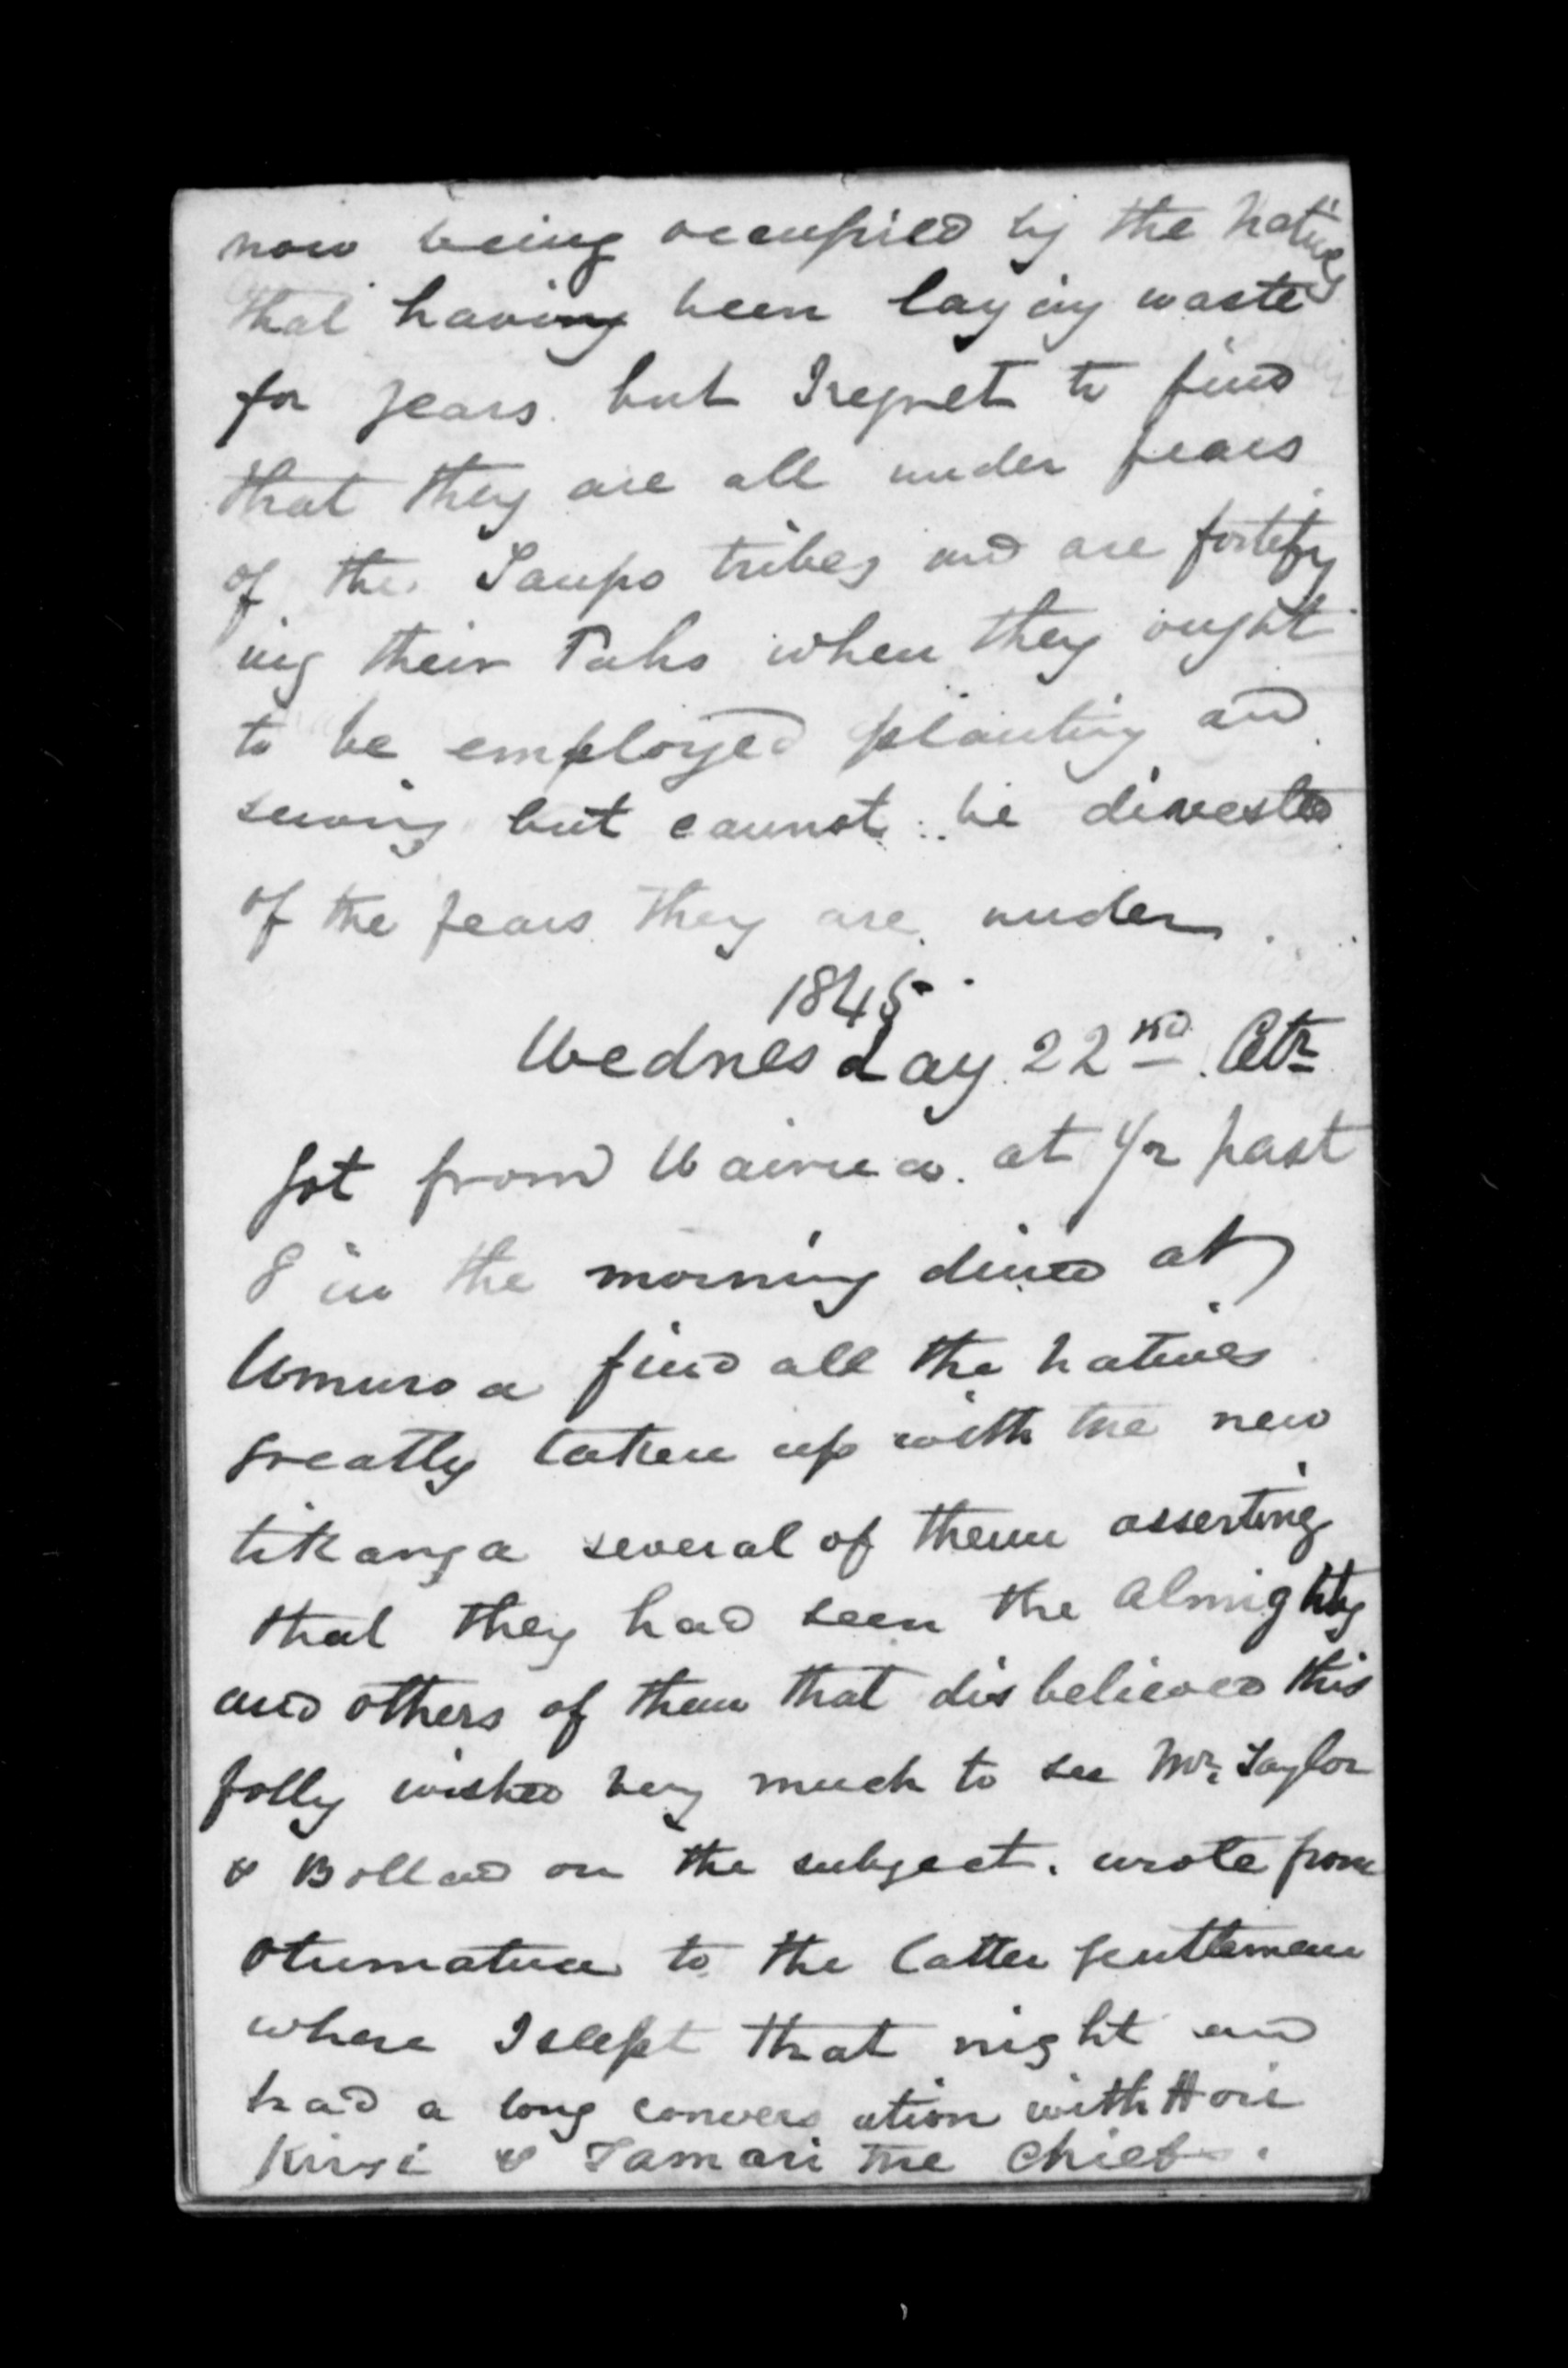 now being occupied by the Natives
that having been laying waste
for years but I regret to find
that they are all under fears
of the Taupo tribes and are fortify
ing their Pahs when they ought
to be employed planting and
sewing but cannot be divested
of the fears they are under
1845
Wednesday 22nd Octr
got from Wairua at 1/2 past
8 in the morning dined at
Umuroa find all the natives
greatly taken up with the new
tikanga several of them asserting
that they had seen the Almighty
and others of them that disbelieved this
folly wished very much to see Mr. Taylor
& Bolland on the subject. wrote from
Otumatua to the latter gentleman
where I slept that night and
had a long conversation with Hori
Kingi & Tamati the Chiefs.